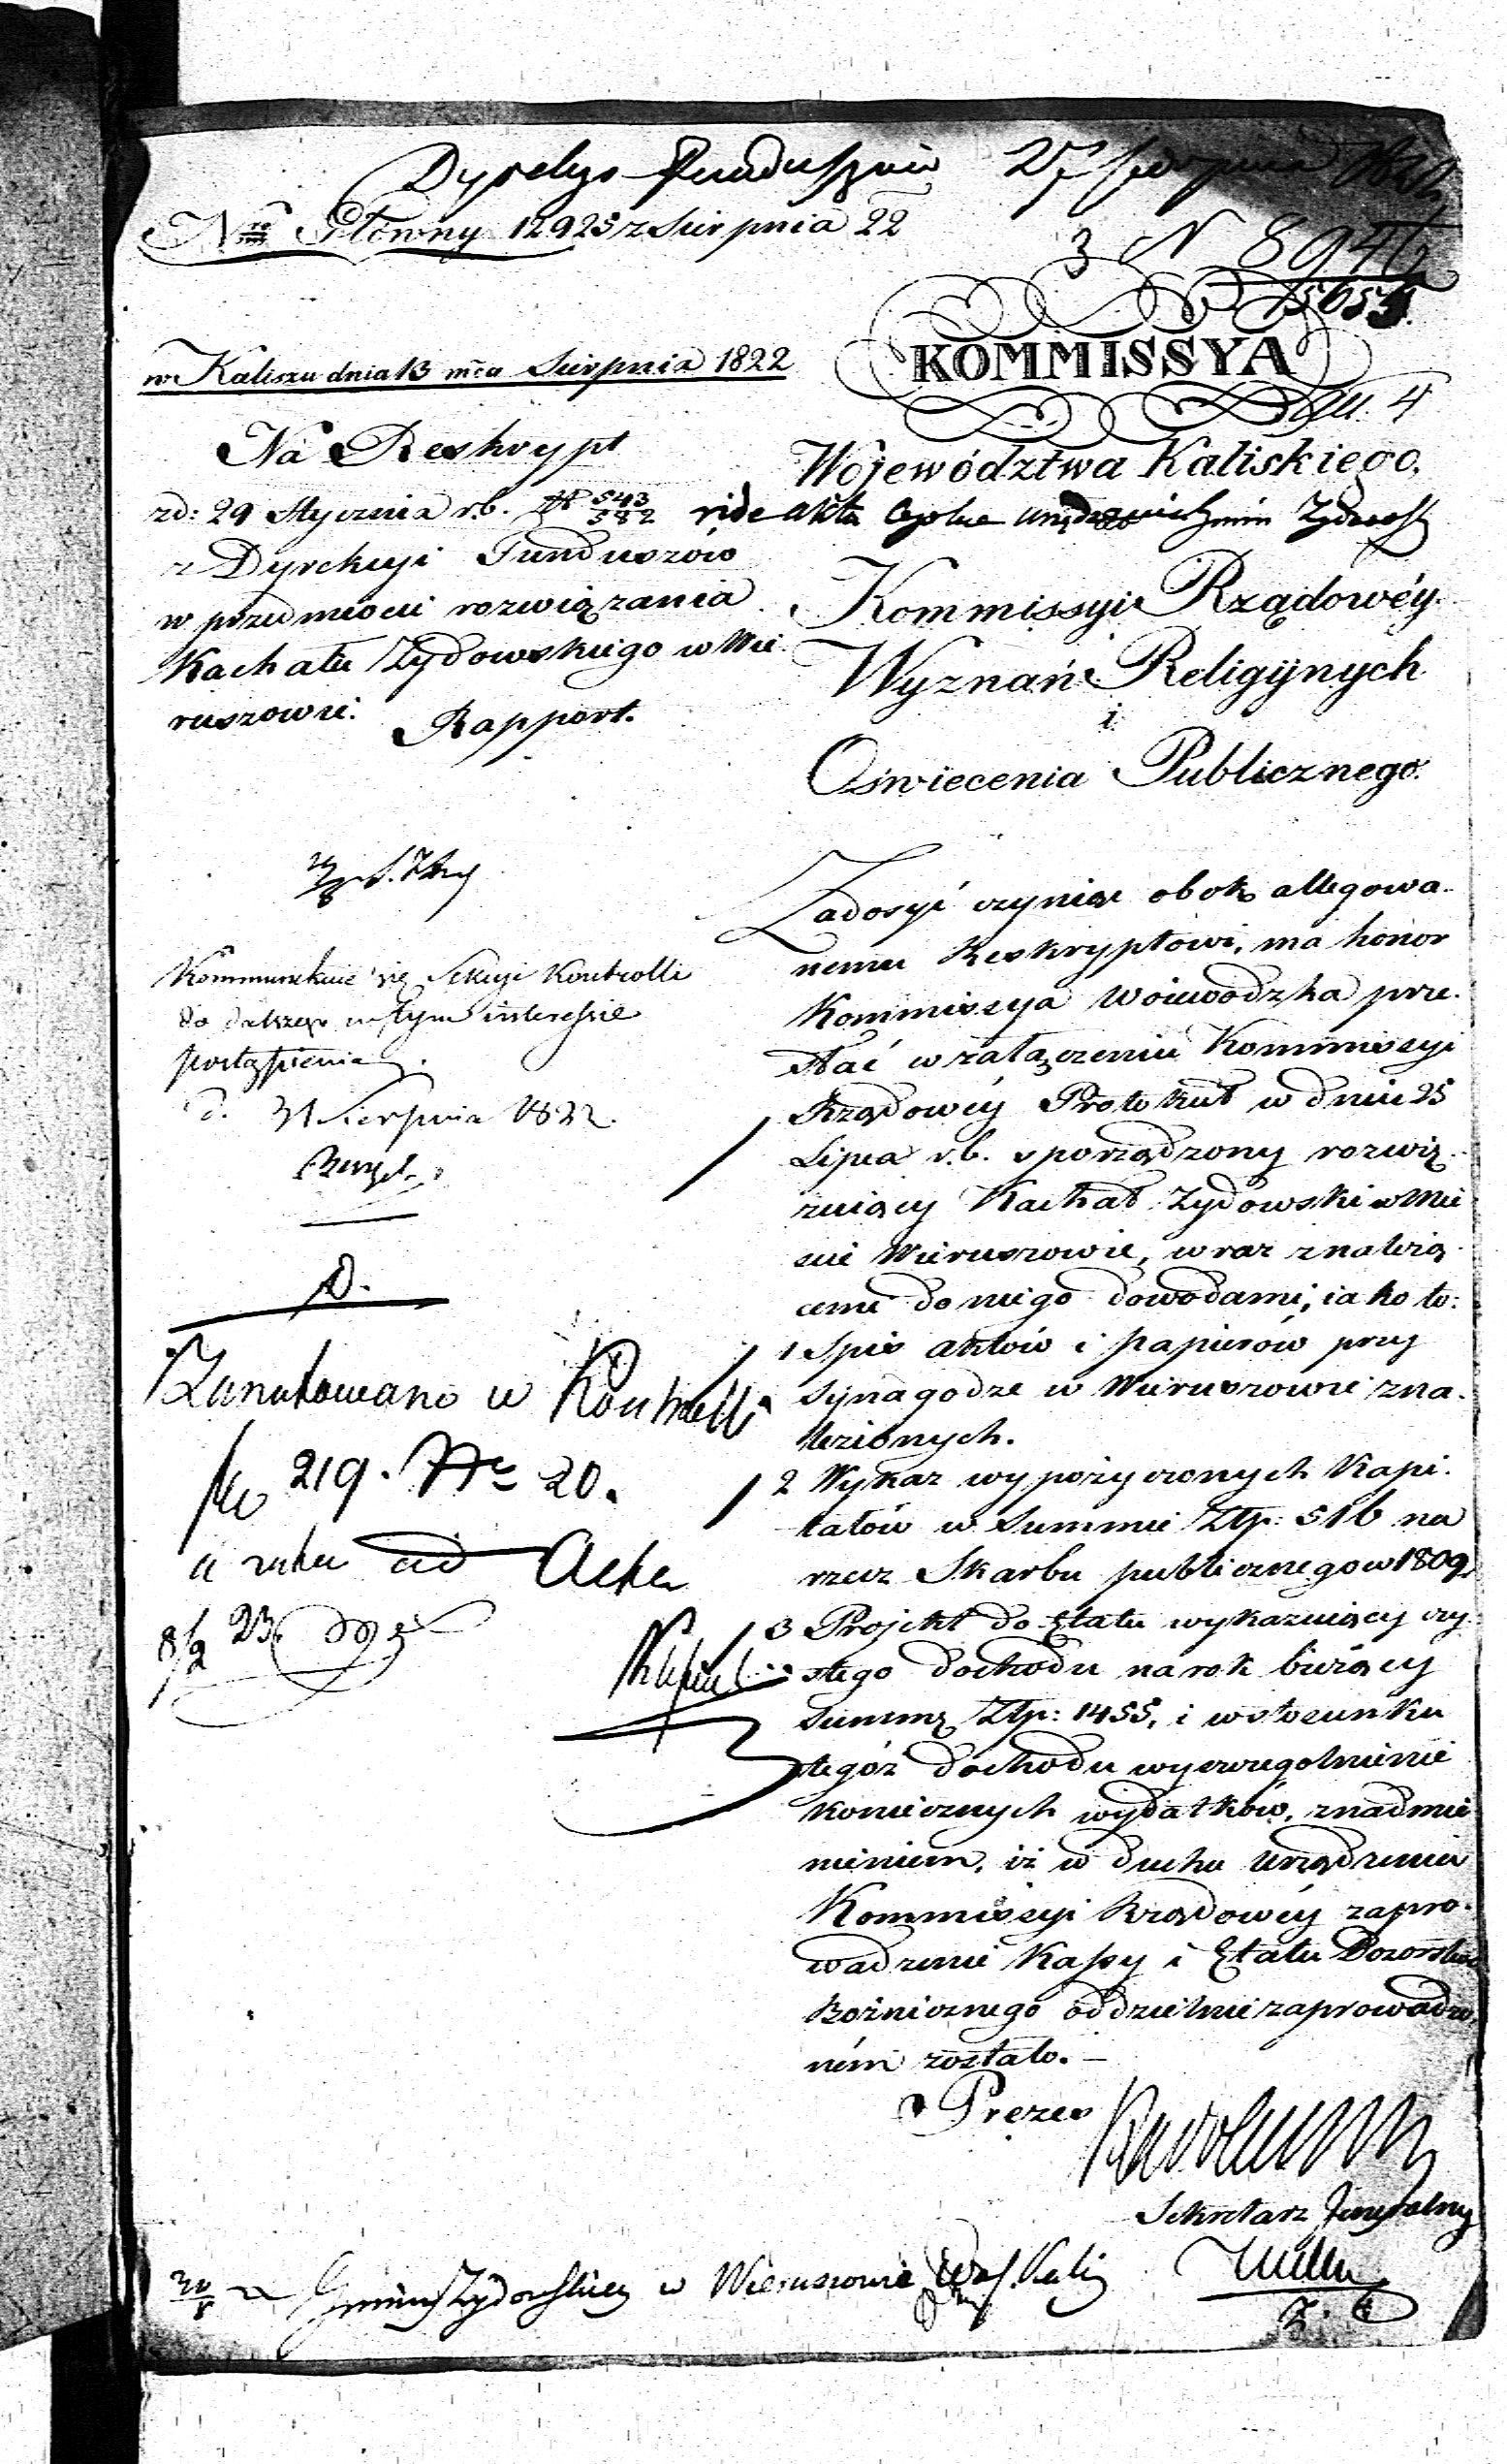 Dyrekcya Funduszów 27 Sierpnia 1822
Nro Główny 12923 z Sierpnia 22
3 N 8946
15653
w Kaliszu dnia 13 mca Sierpnia 1822
KOMMISSYA
4
Województwa Kaliskiego.
Na Reskrypt
zd: 29 Stycznia r.b. N 543/582
vide akta
z Dyrekcyi Funduszów
w przedmiocie rozwiązania
Kachału Żydowskiego w Wie
ruszowie.
Rapport.
Kommissyi Rządowéy
Wyznań Religijnych
i
Oświecenia Publicznego.
Kommunikuie się Sekcyi Kontrolli
do dalszego w tym interessie
postąpienia
d. 31 Sierpnia 1822.
D.
Zanotowano w Kontrolli
219. No 20.
ad Acta
8/9 23.
Zadosyć czyniąc obok allegowa-
nemu Reskryptowi, ma honor
Kommissya Woiewódzka prze-
słać w załączeniu Kommissyi
Rządowéy Protokuł w dniu 25
Lipca r.b. sporządzony rozwią-
zuiący Kachał Żydowski w Mie
ście Wieruszowie, wraz z należą-
cemi do niego dowodami, iako to:
1 Spis aktów i papierów przy
synagodze w Wieruszowie zna-
lezionych.
2 Wykaz wypożyczonych Kapi-
tałów w Summie Złp: 516 na
rzecz Skarbu publicznego w 1809
3 Projekt do Etatu wykazuiący czy-
stego dochodu na rok bieżący
Summę Złp: 1455, i w stosunku
tegóż dochodu wyszczególnienie
koniecznych wydatków, z nadmie
nieniem, iż w duchu urządzenia
Kommissyi Rządowéy zapro-
wadzenie Kassy i Etatu Dozorstwa
Bożniczego oddzielnie zaprowadzo-
ném zostało.
Prezes
Sekretarz Jeneralny
Gminy Żydowskiey w Wieruszowie